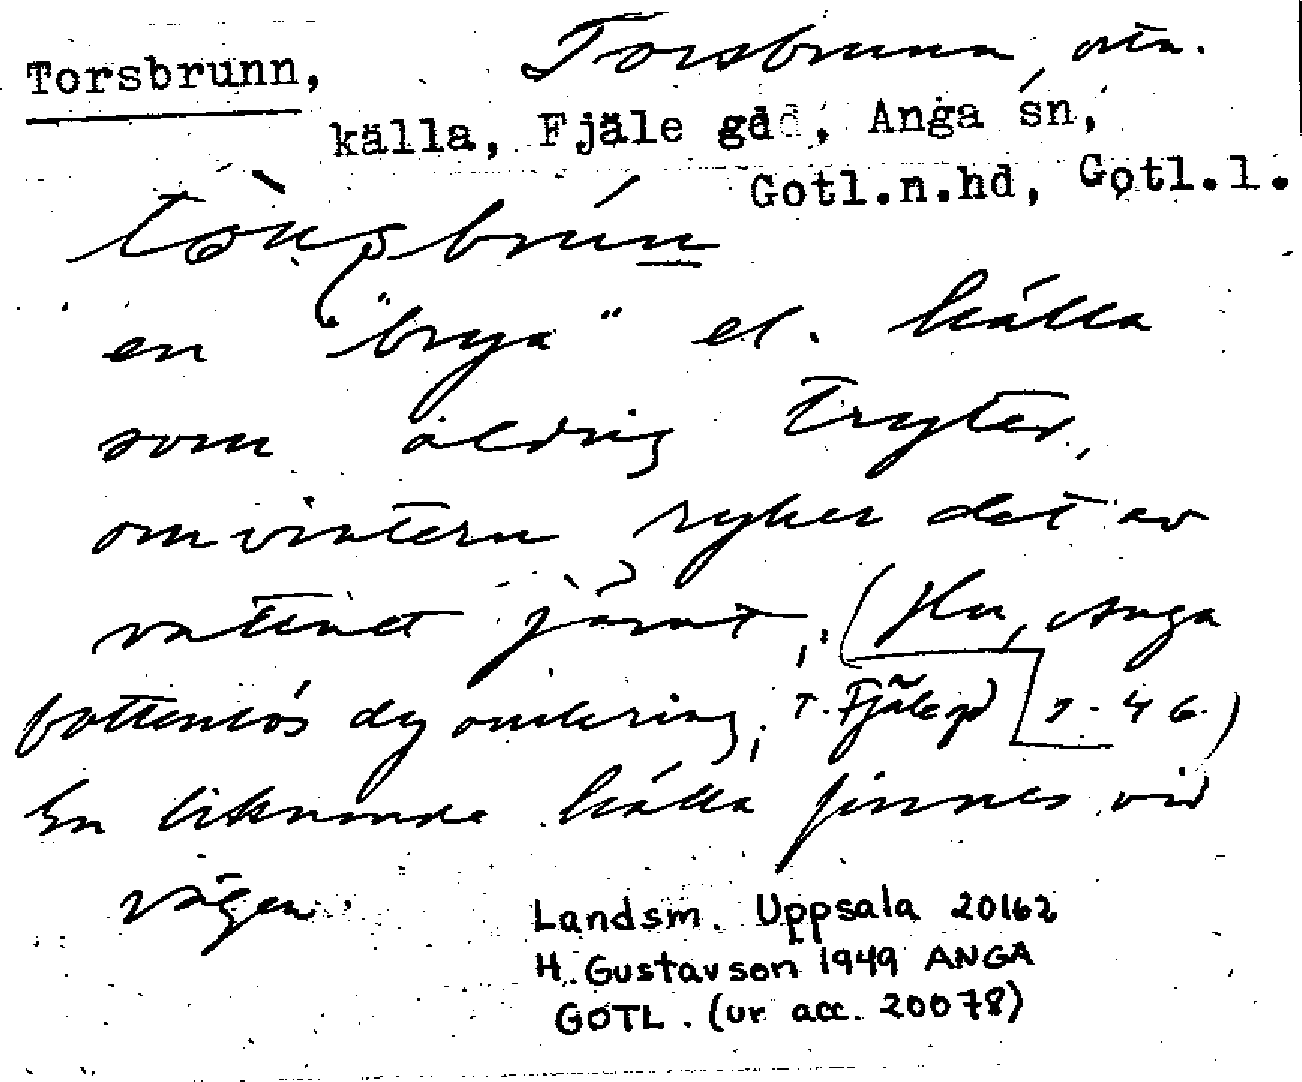 Torsbrunn, Torsbrunn, ortn.
källa, Fjäle gåd, Anga sn,
Gotl.n.hd, Gotl.l.
en "brya" el. källa
som aldrig tryter,
om vintern ryker det av
vattnet jämt; (Hu, Anga
bottenlös dy omkring; T. Fjäle gd 1-46.)
En liknande källa finnes vid
vägen.
Landsm. Uppsala 20162
H. Gustavson 1949 ANGA
GOTL. (ur acc. 20078)